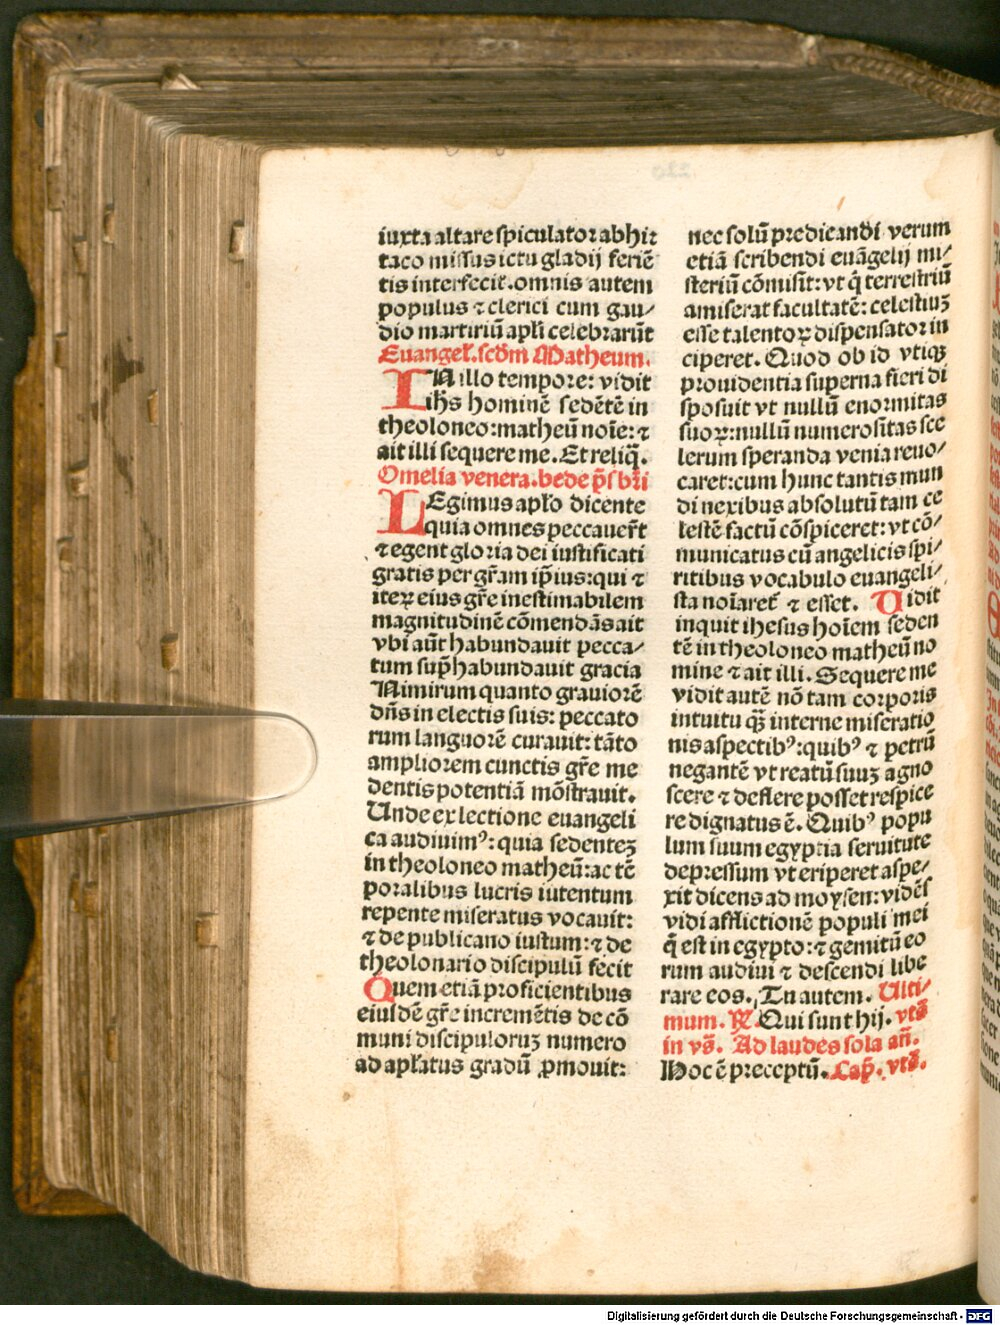 iuxta altare spiculator abhir
taco missus ictu gladij feriē
tis interfecit. omnis autem
populus ⁊ clerici cum gau⸗
dio martiriū apl̄i celebrarūt
Euangel̄. scd̄m Matheum.
IN illo tempore: vidit
ih̄s hominē sedētē in
theoloneo: matheū noīe: ⁊
ait illi sequere me. Et reliq̄.
Omelia venera. bede p̄sbr̄i
LEgimus apl̄o dicente
quia omnes peccauer̄t
⁊ egent gloria dei iustificati
gratis per gr̄am ip̄ius: qui ⁊
iteꝝ eius gr̄e inestimabilem
magnitudinē cōmendās ait
vbi aūt habundauit pecca⸗
tum sup̄habundauit gracia
Nimirum quanto grauiorē
dn̄s in electis suis: peccato
rum languorē curauit: tāto
ampliorem cunctis gr̄e me
dentis potentiā mōstrauit.
Unde ex lectione euangeli
ca audiuimꝰ: quia sedentez
in theoloneo matheū: ac tē
poralibus lucris iutentum
repente miseratus vocauit:
⁊ de publicano iustum: ⁊ de
theolonario discipulū fecit
Quem etiā proficientibus
eiusdē gr̄e incremētis de cō
muni discipuloruz numero
ad apl̄atus gradū ꝓmouit:
nec solū predicandi verum
etiā scribendi euāgelij mi⸗
steriū cōmisit: vt q̄ terrestriū
amiserat facultatē: celestiuz
esse talentoꝝ dispensator in
ciperet. Quod ob id vtiqz
prouidentia superna fieri di
sposuit vt nullū enormitas
suoꝝ: nullū numerositas sce
lerum speranda venia reuo⸗
caret: cum hunc tantis mun
di nexibus absolutū tam ce
lestē factū cōspiceret: vt cō⸗
municatus cū angelicis spi⸗
ritibus vocabulo euangeli⸗
sta noīaret̄ ⁊ esset. Uidit
inquit ihesus hoīem seden
tē in theoloneo matheū no
mine ⁊ ait illi. Sequere me
vidit autē nō tam corporis
intuitu qz̄ interne miseratio
nis aspectibꝰ: quibꝰ ⁊ petrū
negantē vt reatū suuz agno
scere ⁊ deflere posset respice
re dignatus ē. Quibꝰ popu
lum suum egyptia seruitute
depressum vt eriperet aspe⸗
xit dicens ad moysen: vidēs
vidi afflictionē populi mei
q̄ est in egypto: ⁊ gemitū eo
rum audiui ⁊ descendi libe
rare eos. Tu autem. Ulti⸗
mum. ℟. Qui sunt hij. vts̄
in vs̄. Ad laudes sola an̄.
Hoc ē preceptū. Cap̄. vts̄.
Digitalisierung gefördert durch die Deutsche Forschungsgemeinschaft - DFG